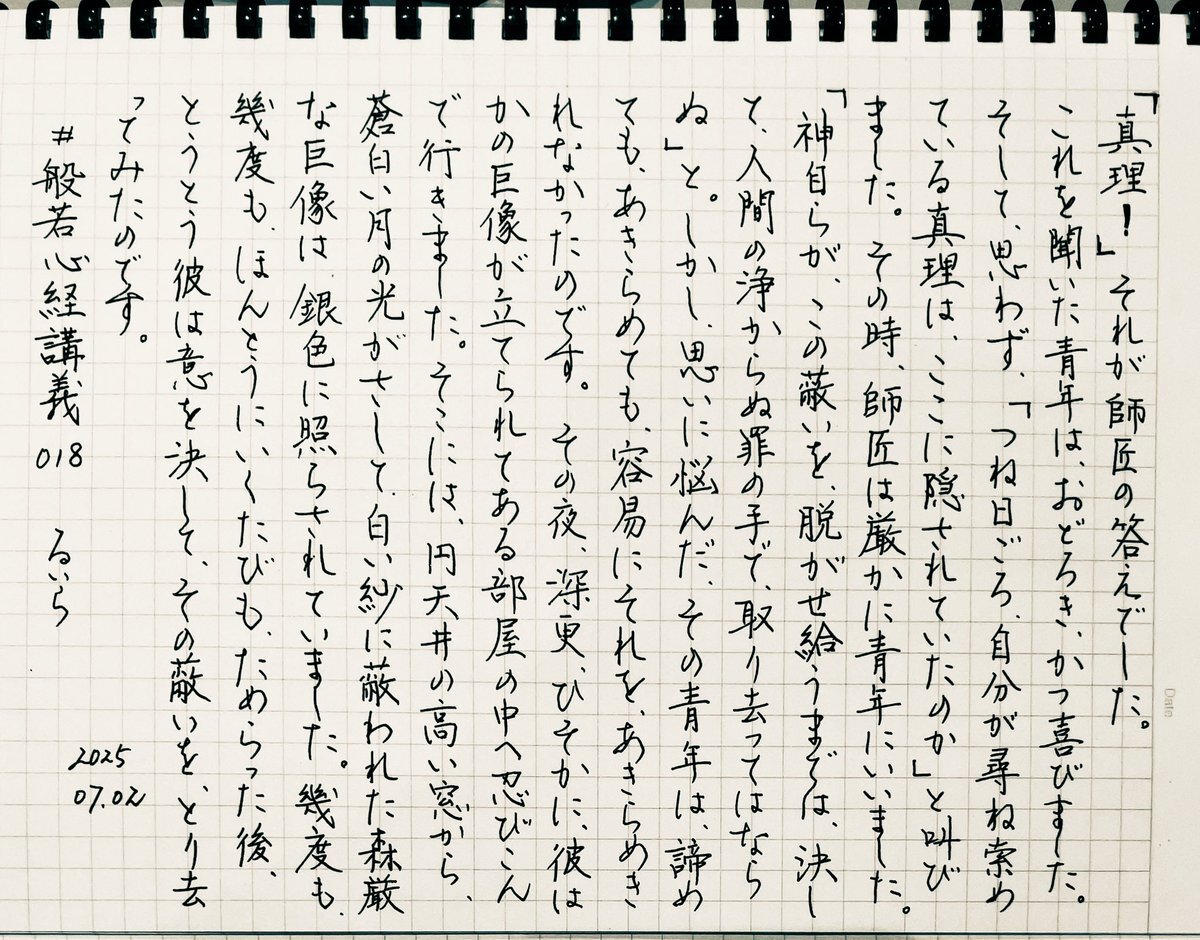 「真理!」それが師匠の答えでした。
これを聞いた青年は、おどろき、かつ喜びました。
そして、思わず、「つね日ごろ、自分が尋ね索め
ている真理は、ここに隠されていたのか」と叫び
ました。その時、師匠は厳かに青年にいいました。
「神自らが、この蔽いを、脱がせ給うまでは、決し
て、人間の浄からぬ罪の手で、取り去ってはなら
ぬ」と。しかし、思いに悩んだ、その青年は、諦め
ても、あきらめても、容易にそれを、あきらめき
れなかったのです。その夜、深更、ひそかに、彼は
かの巨像が立てられてある部屋の中へ忍びこん
で行きました。そこには、円天井の高い窓から、
蒼白い月の光がさして、白い紗に蔽われた森厳
な巨像は銀色に照らされていました。幾度も、
幾度も、ほんとうにいくたびも、ためらった後、
とうとう彼は意を決して、その蔽いを、とり去
ってみたのです。
#般若心経講義 018 るいら
2025
07.02
Date